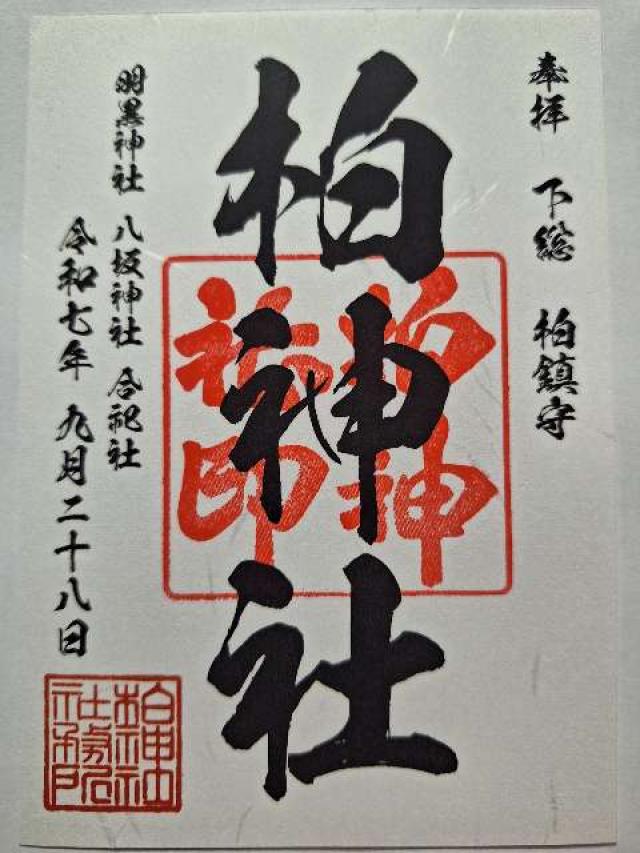 奉拝 下総 柏鎮守
柏神社
柏神社印
羽黒神社 八坂神社 合祀社
令和七年 九月二十八日
柏神社社務所